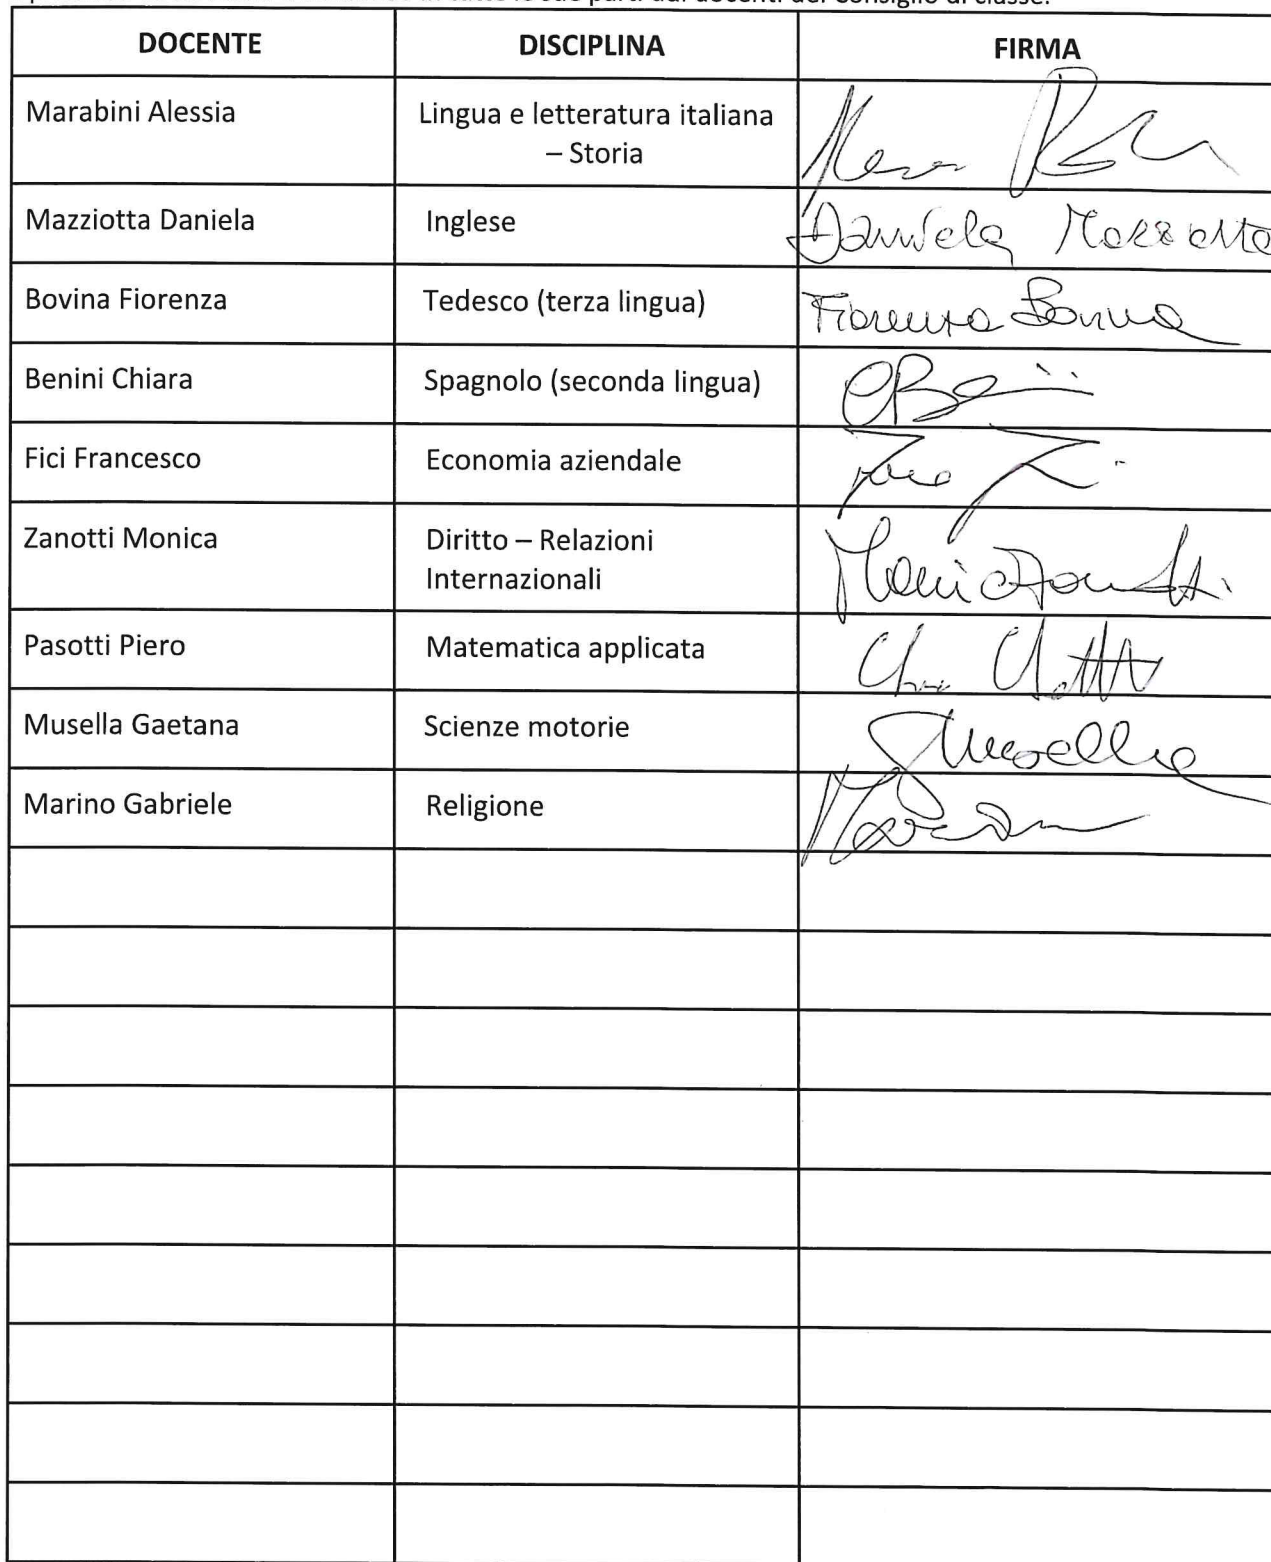 DOCENTE DISCIPLINA FIRMA
Marabini Alessia Lingua e letteratura italiana
– Storia
Mazziotta Daniela Inglese Daniela
Bovina Fiorenza Tedesco (terza lingua) Fiorenza Bovina
Benini Chiara Spagnolo (seconda lingua)
Fici Francesco Economia aziendale
Zanotti Monica Diritto – Relazioni
Internazionali
Pasotti Piero Matematica applicata
Musella Gaetana Scienze motorie
Marino Gabriele Religione